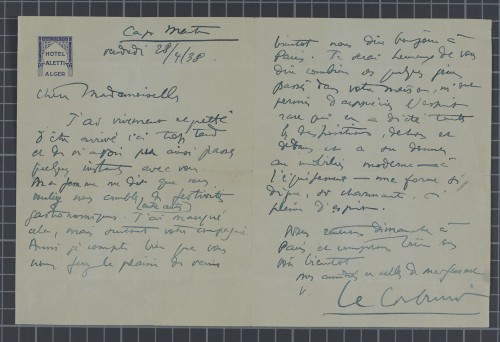 HOTEL
ALETTI
ALGER
Cap Martin
vendredi 28/4/38
Chère Mademoiselle
J'ai vivement regretté
d'être arrivé ici trop tard
et de n'avoir pu ainsi passer
quelques instants avec vous
Ma femme me dit que vous
nous
gastronomiques. J'ai manqué
cela, mais surtout votre compagnie.
Aussi je compte bien que vous
nous ferez le plaisir de venir
bientôt nous dire bonjour à
Paris. Je serai heureux de vous
dire combien les quelques jours
passés dans votre maison, m'ont
permis d'apprécier l'esprit
rare qui en a dicté toutes
les dispositions, dehors et
dedans et a su donner
au mobilier moderne — à
l'équipement — une forme si
digne, si charmante, si
pleine d'esprit.
Nous rentrons dimanche à
Paris et comptons bien vous
voir bientôt
nos amitiés et celles de ma femme
à v
Le Corbusier